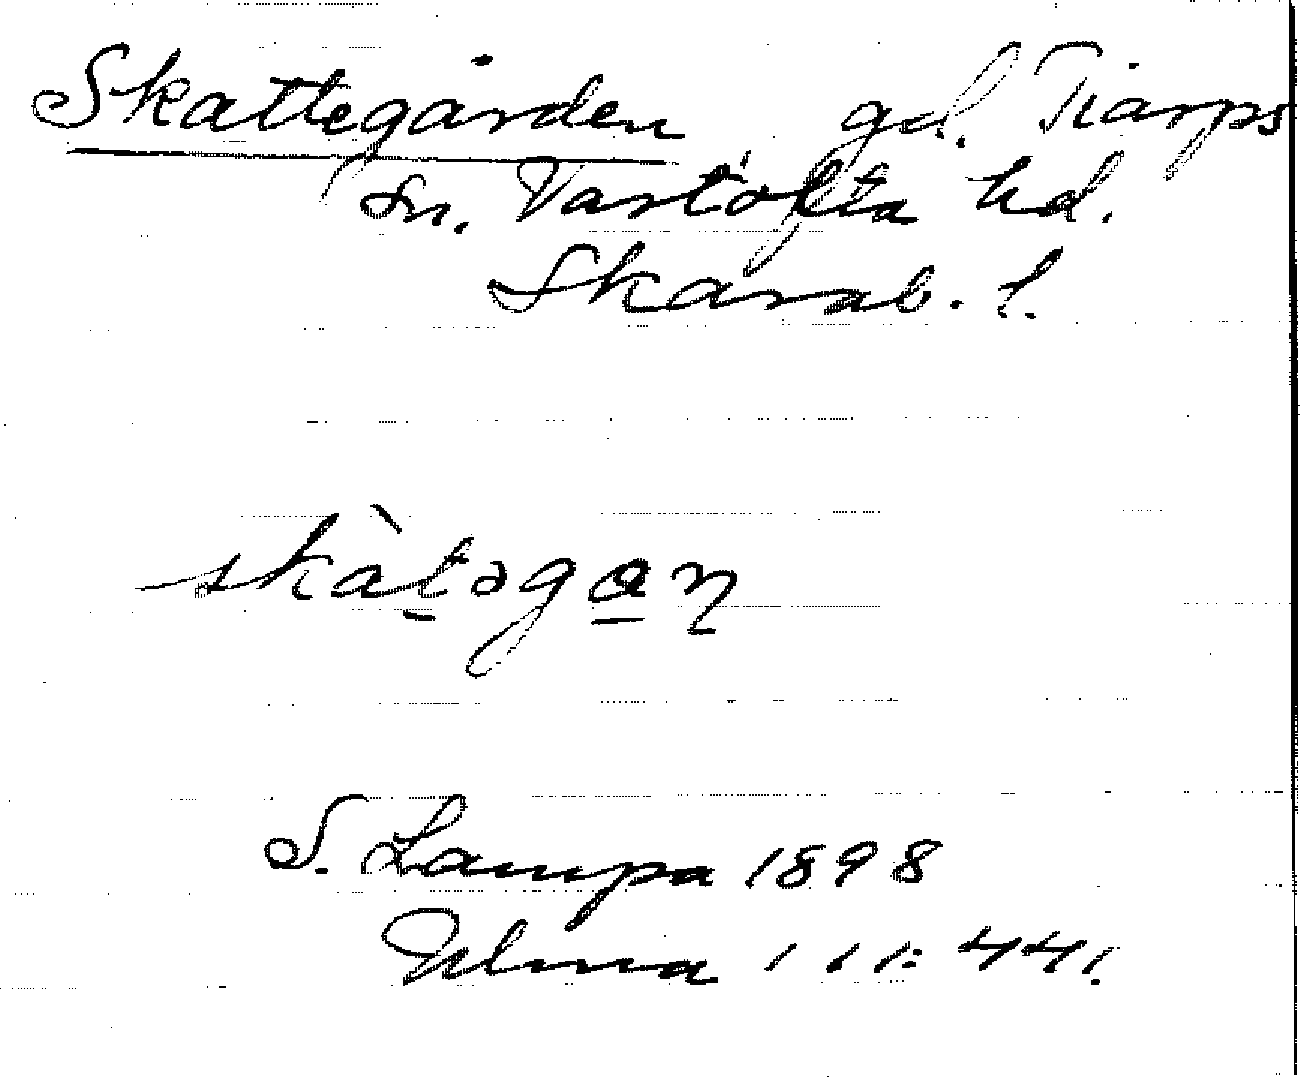 Skattegården gd. Tiarps
sn. Vartofta hd.
Skarab. l.
skàtəgan
S. Lampa 1898
Ulma 111:441.